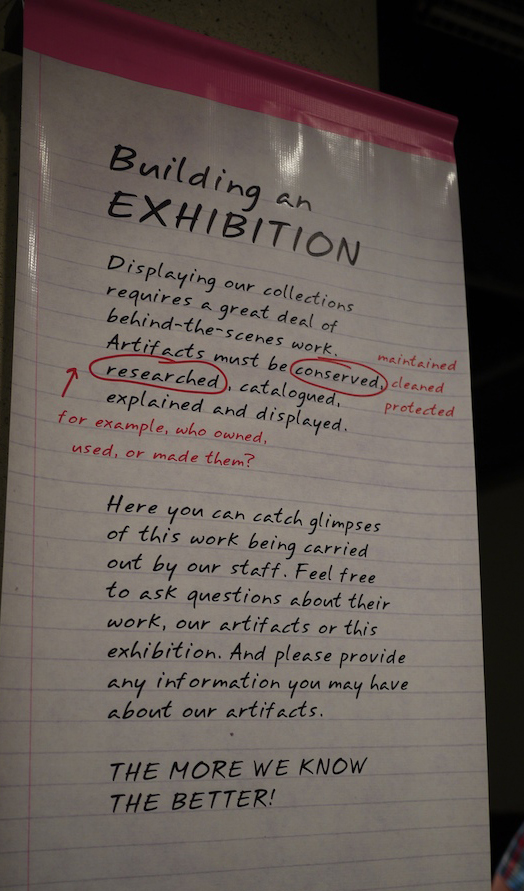 Building an
EXHIBITION
Displaying our collections
requires a great deal of
behind-the-scenes work.
Artifacts must be conserved,
researched, catalogued,
explained and displayed.
maintained
cleaned
protected
for example, who owned,
used, or made them?
Here you can catch glimpses
of this work being carried
out by our staff. Feel free
to ask questions about their
work, our artifacts or this
exhibition. And please provide
any information you may have
about our artifacts.
THE MORE WE KNOW
THE BETTER!